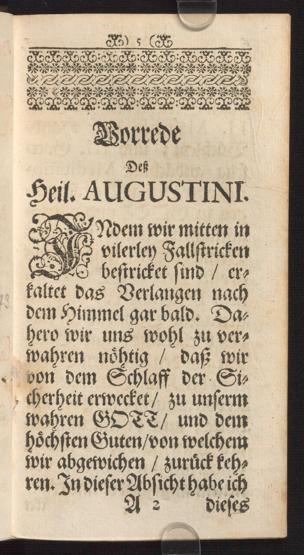 ) 5 (
Vorrede
Deß
Heil. AUGUSTINI.
INdem wir mitten in
vilerley Fallstricken
bestricket sind / er-
kaltet das Verlangen nach
dem Himmel gar bald. Da-
hero wir uns wohl zu ver-
wahren nöhtig / daß wir
von dem Schlaff der Si-
cherheit erwecket / zu unserm
wahren GOTT / und dem
höchsten Guten / von welchem
wir abgewichen / zurück keh-
ren. In dieser Absicht habe ich
A 2 dieses